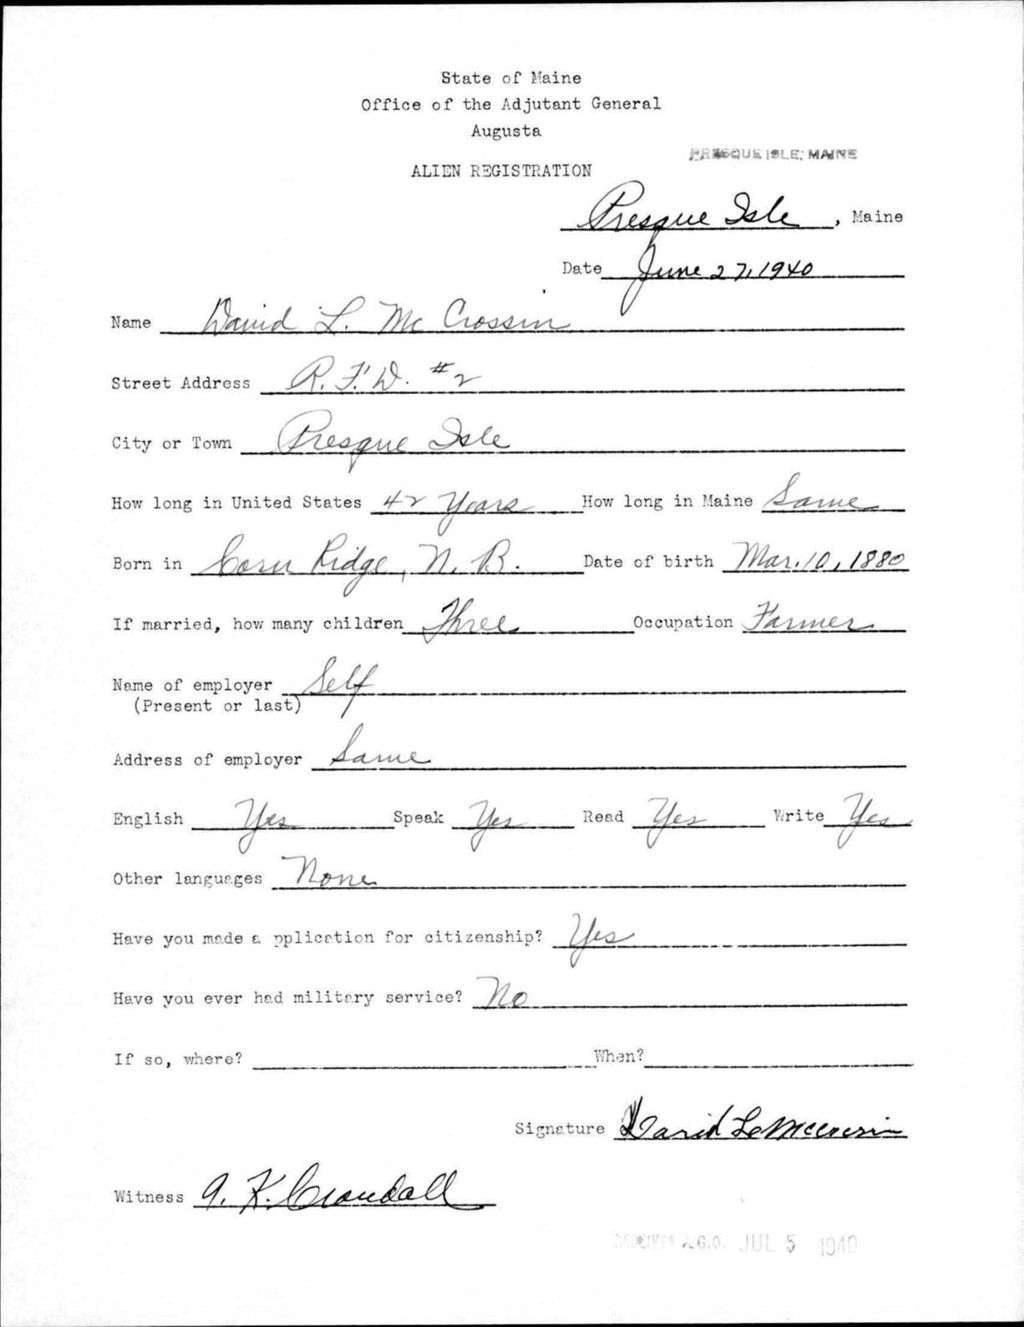 State of Maine
Office of the Adjutant General
Augusta
PRESQUE ISLE, MAINE
ALIEN REGISTRATION
Presque Isle, Maine
Date June 27, 1940
Name David L. McCrossin
Street Address R.F.D. #2
City or Town Presque Isle
How long in United States 42 Years How long in Maine Same
Born in Corn Ridge, N. B. Date of birth Mar. 10, 1880
If married, how many children Three Occupation Farmer
Name of employer Self
(Present or last)
Address of employer Same
English Yes Speak Yes Read Yes Write Yes
Other languages None
Have you made a pplication for citizenship? Yes
Have you ever had military service? No
If so, where? When?
Signature David L McCrossin
Witness A. K. Crandall
RECEIVED A.G.O. JUL 5 1940